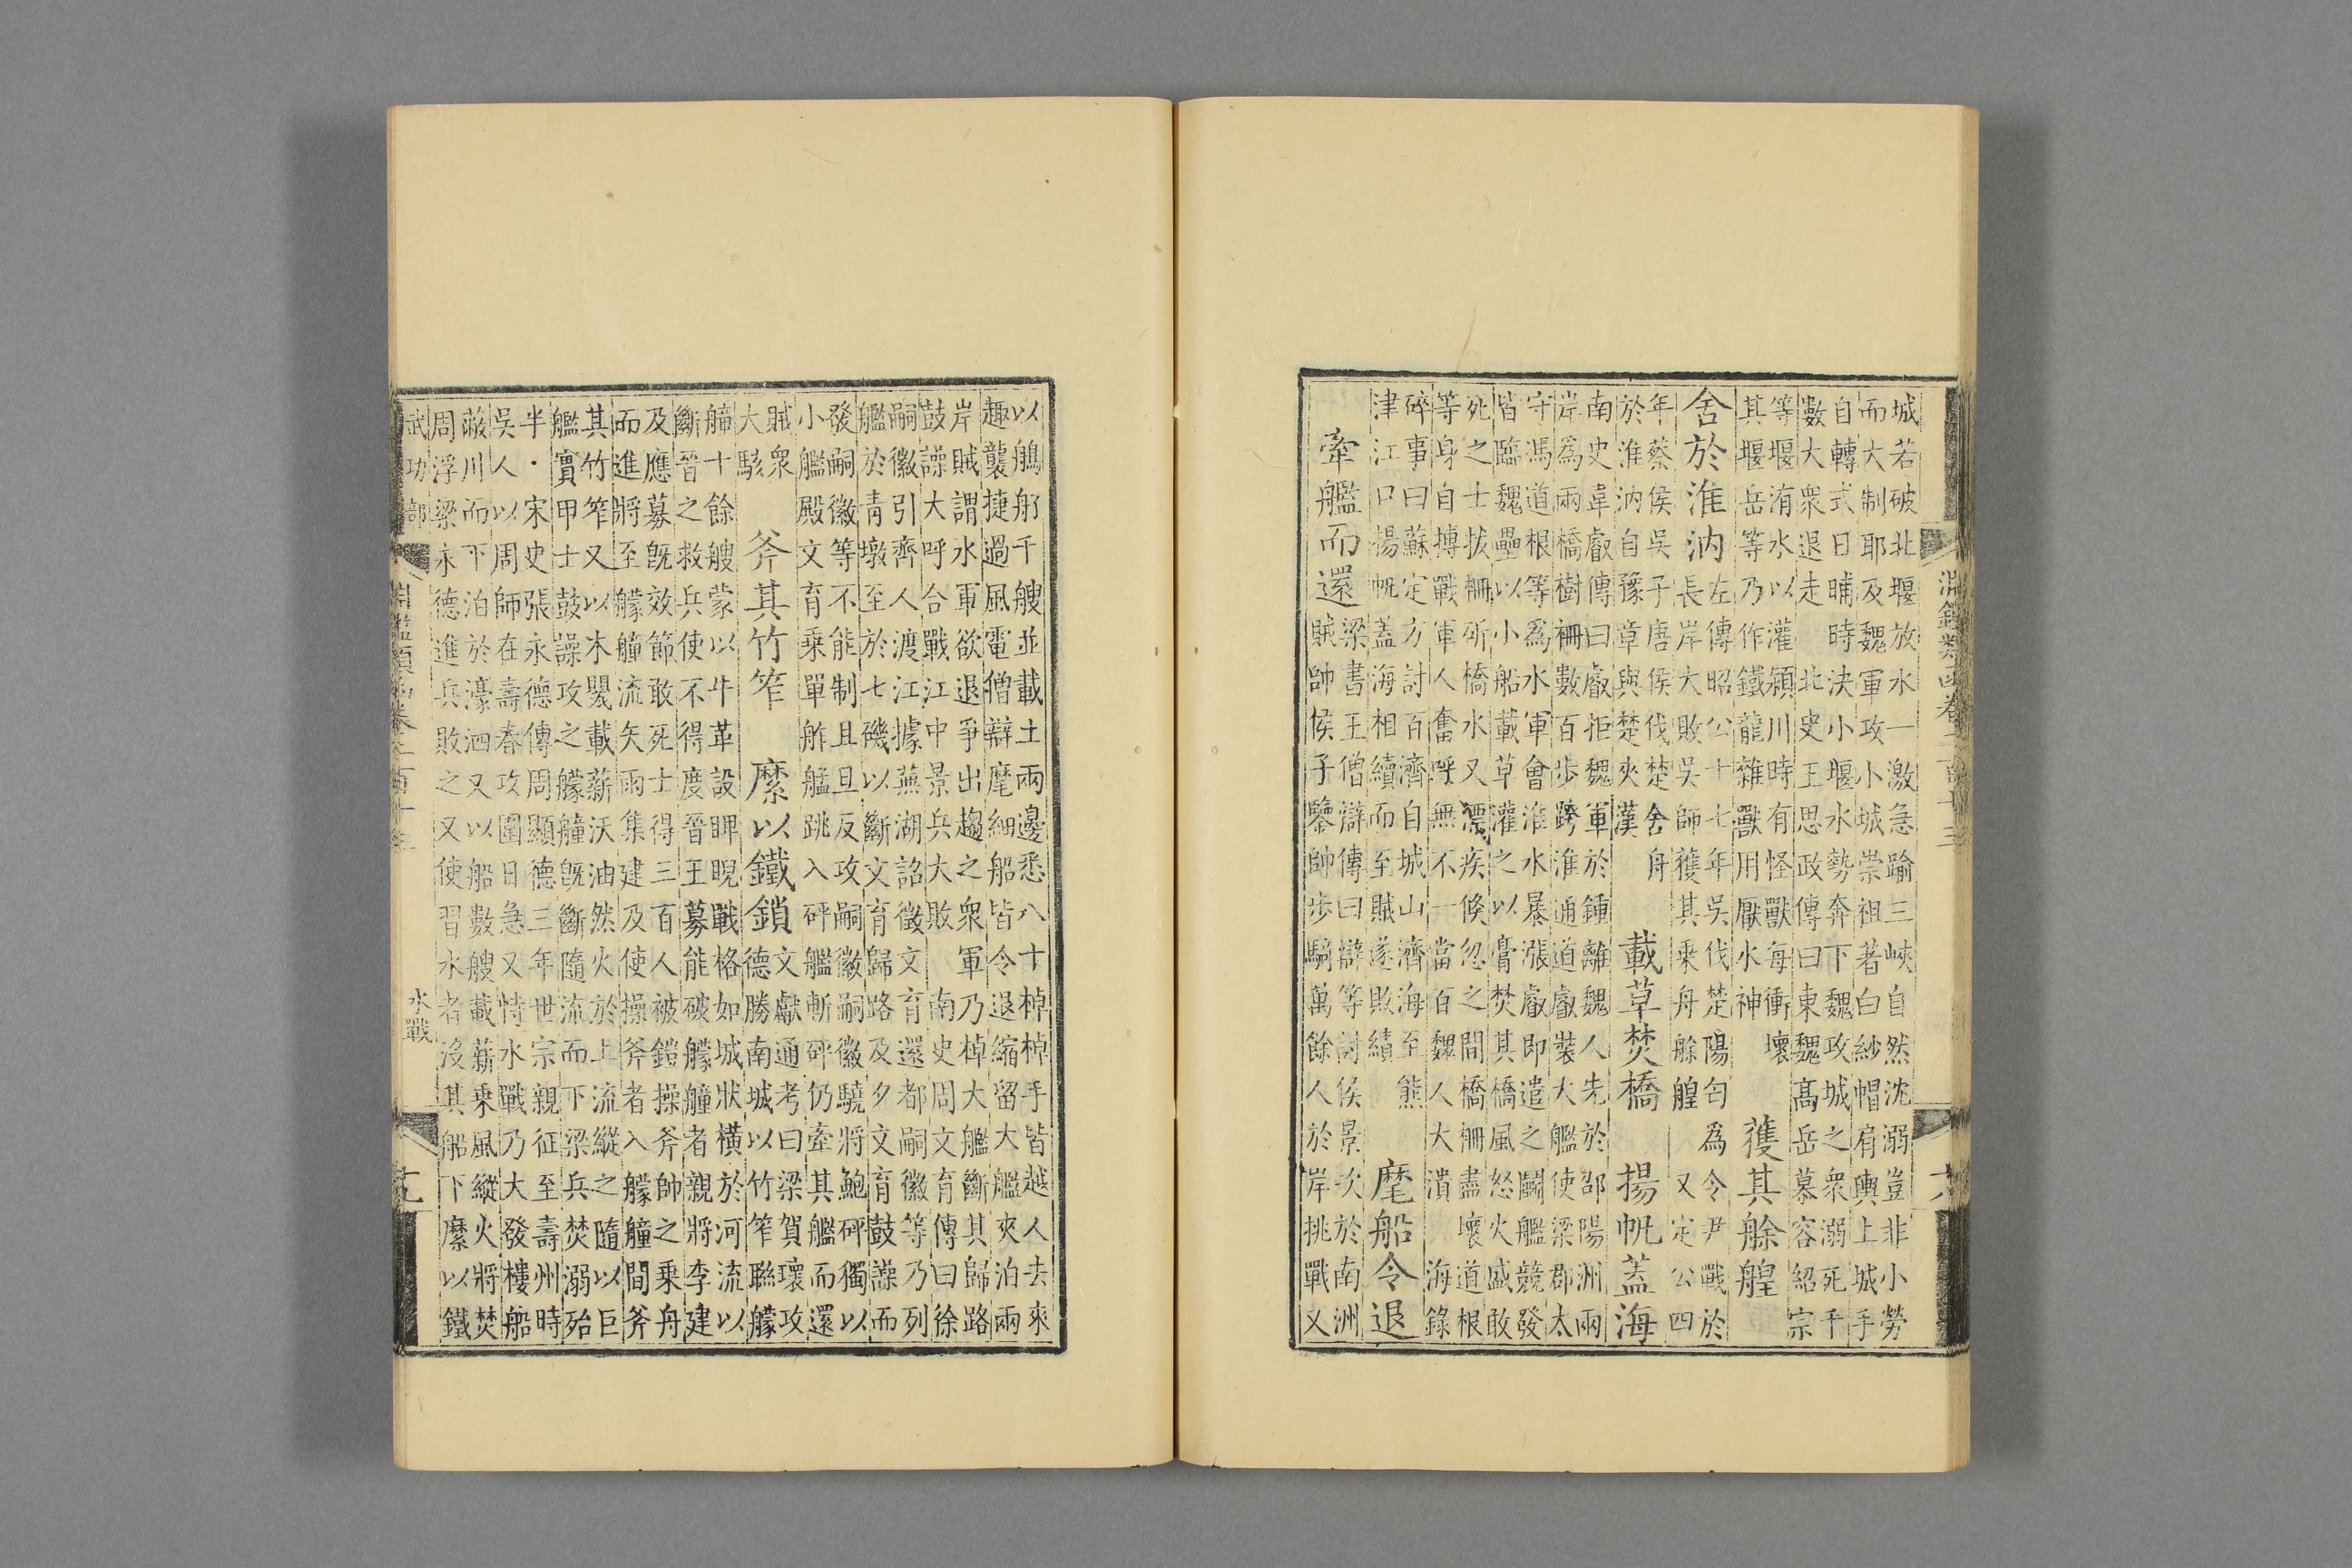 淵鑑類函卷二百十三
城若破北堰放水一激急踰三峽自然沈溺豈非小勞
而大制耶及魏軍攻小城崇祖著白紗帽肩輿上城手
自轉式日晡時決小堰水勢奔下魏攻城之衆溺死千
數大衆退走 北史王思政傳曰東魏高岳慕容紹宗
等堰洧水以灌潁川時有怪獸每衝壞
其堰岳等乃作鐵龍雜獸用厭水神
獲其艅艎
舍於淮汭
左傳昭公十七年吳伐楚陽匄爲令尹戰於
長岸大敗吳師獲其乘舟艅艎 又定公四
年蔡侯吳子唐侯伐楚舍舟
於淮汭自豫章與楚夾漢
載草焚橋
揚帆蓋海
南史韋叡傳曰叡拒魏軍於鍾離魏人先於邵陽洲兩
岸爲兩橋樹柵數百步跨淮通道叡裝大艦使梁郡太
守馮道根等爲水軍會淮水暴漲叡即遣之鬬艦競發
皆臨魏壘以小船載草灌之以膏焚其橋風怒火盛敢
死之士拔柵斫橋水又漂疾倏忽之間橋柵盡壞道根
等身自搏戰軍人奮呼無不一當百魏人大潰 海錄
碎事曰蘇定方討百濟自城山濟海至熊
津江口揚帆蓋海相續而至賊遂敗績
麾船令退
牽艦而還
梁書王僧辯傳曰辯等討侯景次於南洲
賊帥侯子鑒帥步騎萬餘人於岸挑戰又
以鵃舠千艘並載土兩邊悉八十棹棹手皆越人去來
趣襲捷過風電僧辯麾細船皆令退縮留大艦夾泊兩
岸賊謂水軍欲退爭出趨之衆軍乃棹大艦斷其歸路
鼓譟大呼合戰江中景兵大敗 南史周文育傳曰徐
嗣徽引齊人渡江據蕪湖詔徵文育還都嗣徽等乃列
艦於青墩至於七磯以斷文育歸路及夕文育鼓譟而
發嗣徽等不能制且旦反攻嗣徽嗣徽驍將鮑砰獨以
小艦殿文育乘單舴艋跳入砰艦斬砰仍牽其艦而還
賊衆
大駭
斧其竹笮
縻以鐵鎖
文獻通考曰梁賀瓌攻
德勝南城以竹笮聯艨
艟十餘艘蒙以牛革設睥睨戰格如城狀橫於河流以
斷晉之救兵使不得度晉王募能破艨艟者親將李建
及應募既效節敢死士得三百人被鎧操斧帥之乘舟
而進將至艨艟流矢雨集建及使操斧者入艨艟間斧
其竹笮又以木甖載薪沃油然火於上流縱之隨以巨
艦實甲士鼓譟攻之艨艟既斷隨流而下梁兵焚溺殆
半・宋史張永德傳周顯德三年世宗親征至壽州時
吳人以周師在壽春攻圍日急又恃水戰乃大發樓船
蔽川而下泊於濠泗又以船數艘載薪乘風縱火將焚
周浮梁永德進兵敗之又使習水者沒其船下縻以鐵
武功部
淵鑑類函卷二百十三
水戰